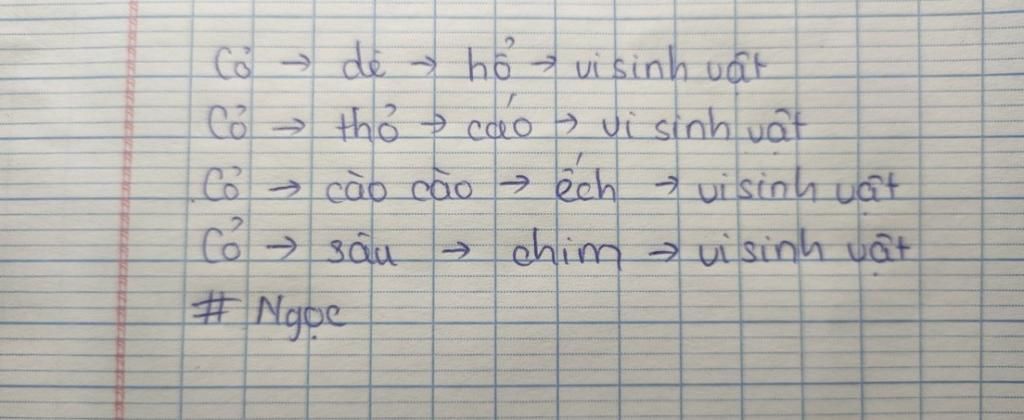 Cỏ → dê → hổ → vi sinh vật
Cỏ → thỏ → cáo → vi sinh vật
Cỏ → cào cào → ếch → vi sinh vật
Cỏ → sâu → chim → vi sinh vật
# Ngọc